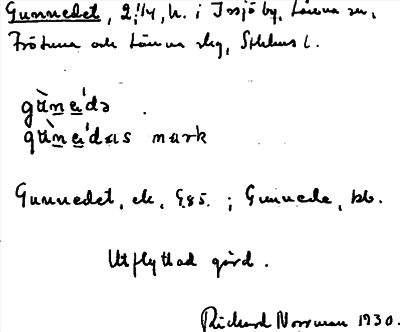 Gunnedet, 2:14, h. i Issjö by, Länna sn,
Frötuna och Länna skg, Sthlms l.
gànedə
gànedas mark
Gunnedet, ek, G85. ; Gunnede, bb.
Utflyttad gård.
Richard Norrman 1930.